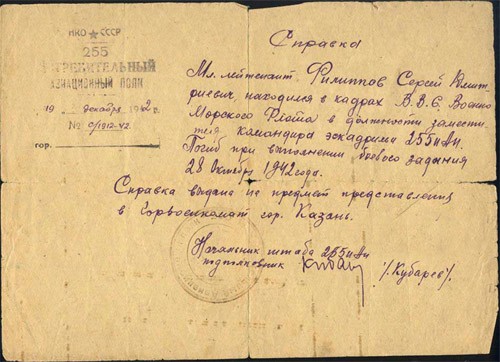 НКО ★ СССР
255
ИСТРЕБИТЕЛЬНЫЙ
АВИАЦИОННЫЙ ПОЛК
19 декабря 1942 г.
№ 0/1912-VZ
гор.
Справка
Мл. лейтенант Филиппов Сергей Дмит-
риевич, находился в кадрах В.В.С. Военно
Морского Флота в должности замести-
теля командира эскадрильи 255 иАп.
Погиб при выполнении боевого задания
28 Октября 1942 года.
Справка выдана на предмет представления
в Горвоенкомат гор. Казань.
Начальник штаба 255 иАп
подполковник
/Кубарев/.